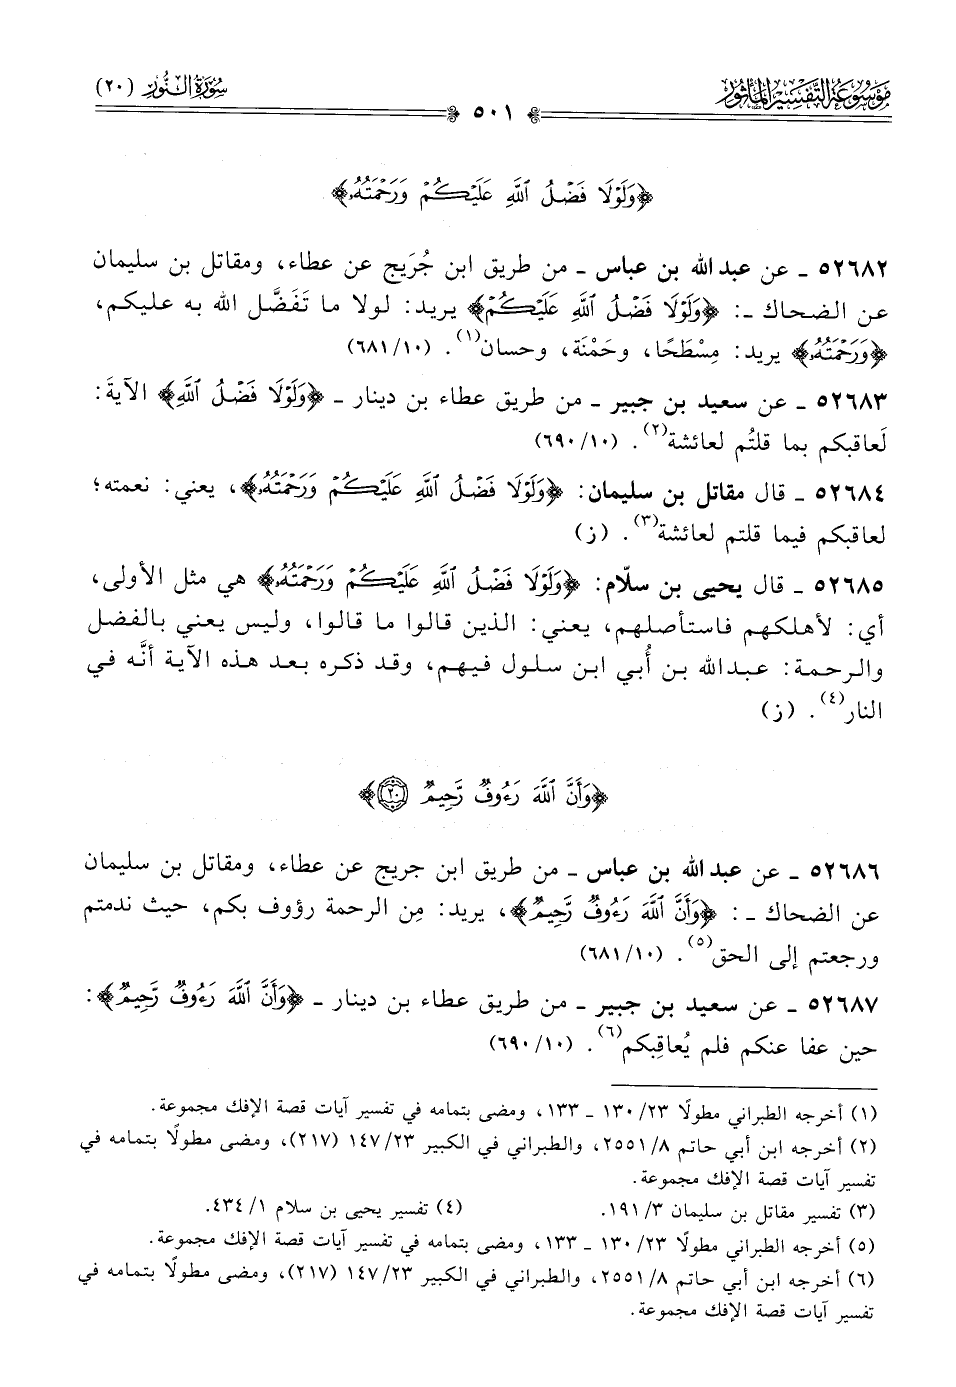 موسوعة التفسير المأثور
سورة النور (٢٠)
٥٠١
﴿وَلَوْلَا فَضْلُ ٱللَّهِ عَلَيْكُمْ وَرَحْمَتُهُۥ﴾
٥٢٦٨٢ ـ عن عبد الله بن عباس ـ من طريق ابن جُرَيج عن عطاء، ومقاتل بن سليمان
عن الضحاك ـ: ﴿وَلَوْلَا فَضْلُ ٱللَّهِ عَلَيْكُمْ﴾ يريد: لولا ما تَفَضَّل الله به عليكم،
﴿وَرَحْمَتُهُۥ﴾ يريد: مِسْطَحًا، وحَمْنَة، وحسان(١). (٦٨١/١٠)
٥٢٦٨٣ ـ عن سعيد بن جبير ـ من طريق عطاء بن دينار ـ ﴿وَلَوْلَا فَضْلُ ٱللَّهِ﴾ الآيةَ:
لَعاقبكم بما قلتُم لعائشة(٢). (٦٩٠/١٠)
٥٢٦٨٤ ـ قال مقاتل بن سليمان: ﴿وَلَوْلَا فَضْلُ ٱللَّهِ عَلَيْكُمْ وَرَحْمَتُهُۥ﴾، يعني: نعمته؛
لعاقبكم فيما قلتم لعائشة(٣). (ز)
٥٢٦٨٥ ـ قال يحيى بن سلّام: ﴿وَلَوْلَا فَضْلُ ٱللَّهِ عَلَيْكُمْ وَرَحْمَتُهُۥ﴾ هي مثل الأولى،
أي: لأهلكهم فاستأصلهم، يعني: الذين قالوا ما قالوا، وليس يعني بالفضل
والرحمة: عبدالله بن أُبي ابن سلول فيهم، وقد ذكره بعد هذه الآية أنَّه في
النار(٤). (ز)
﴿وَأَنَّ ٱللَّهَ رَءُوفٌ رَّحِيمٌ ٢٠﴾
٥٢٦٨٦ ـ عن عبد الله بن عباس ـ من طريق ابن جريج عن عطاء، ومقاتل بن سليمان
عن الضحاك ـ: ﴿وَأَنَّ ٱللَّهَ رَءُوفٌ رَّحِيمٌ﴾، يريد: مِن الرحمة رؤوف بكم، حيث ندمتم
ورجعتم إلى الحق(٥). (٦٨١/١٠)
٥٢٦٨٧ ـ عن سعيد بن جبير ـ من طريق عطاء بن دينار ـ ﴿وَأَنَّ ٱللَّهَ رَءُوفٌ رَّحِيمٌ﴾:
حين عفا عنكم فلم يُعاقِبكم(٦). (٦٩٠/١٠)
(١) أخرجه الطبراني مطولًا ٢٣/ ١٣٠ ـ ١٣٣، ومضى بتمامه في تفسير آيات قصة الإفك مجموعة.
(٢) أخرجه ابن أبي حاتم ٨/ ٢٥٥١، والطبراني في الكبير ٢٣/ ١٤٧ (٢١٧)، ومضى مطولًا بتمامه في
تفسير آيات قصة الإفك مجموعة.
(٣) تفسير مقاتل بن سليمان ٣/ ١٩١.
(٤) تفسير يحيى بن سلام ١/ ٤٣٤.
(٥) أخرجه الطبراني مطولًا ٢٣/ ١٣٠ ـ ١٣٣، ومضى بتمامه في تفسير آيات قصة الإفك مجموعة.
(٦) أخرجه ابن أبي حاتم ٨/ ٢٥٥١، والطبراني في الكبير ٢٣/ ١٤٧ (٢١٧)، ومضى مطولًا بتمامه في
تفسير آيات قصة الإفك مجموعة.